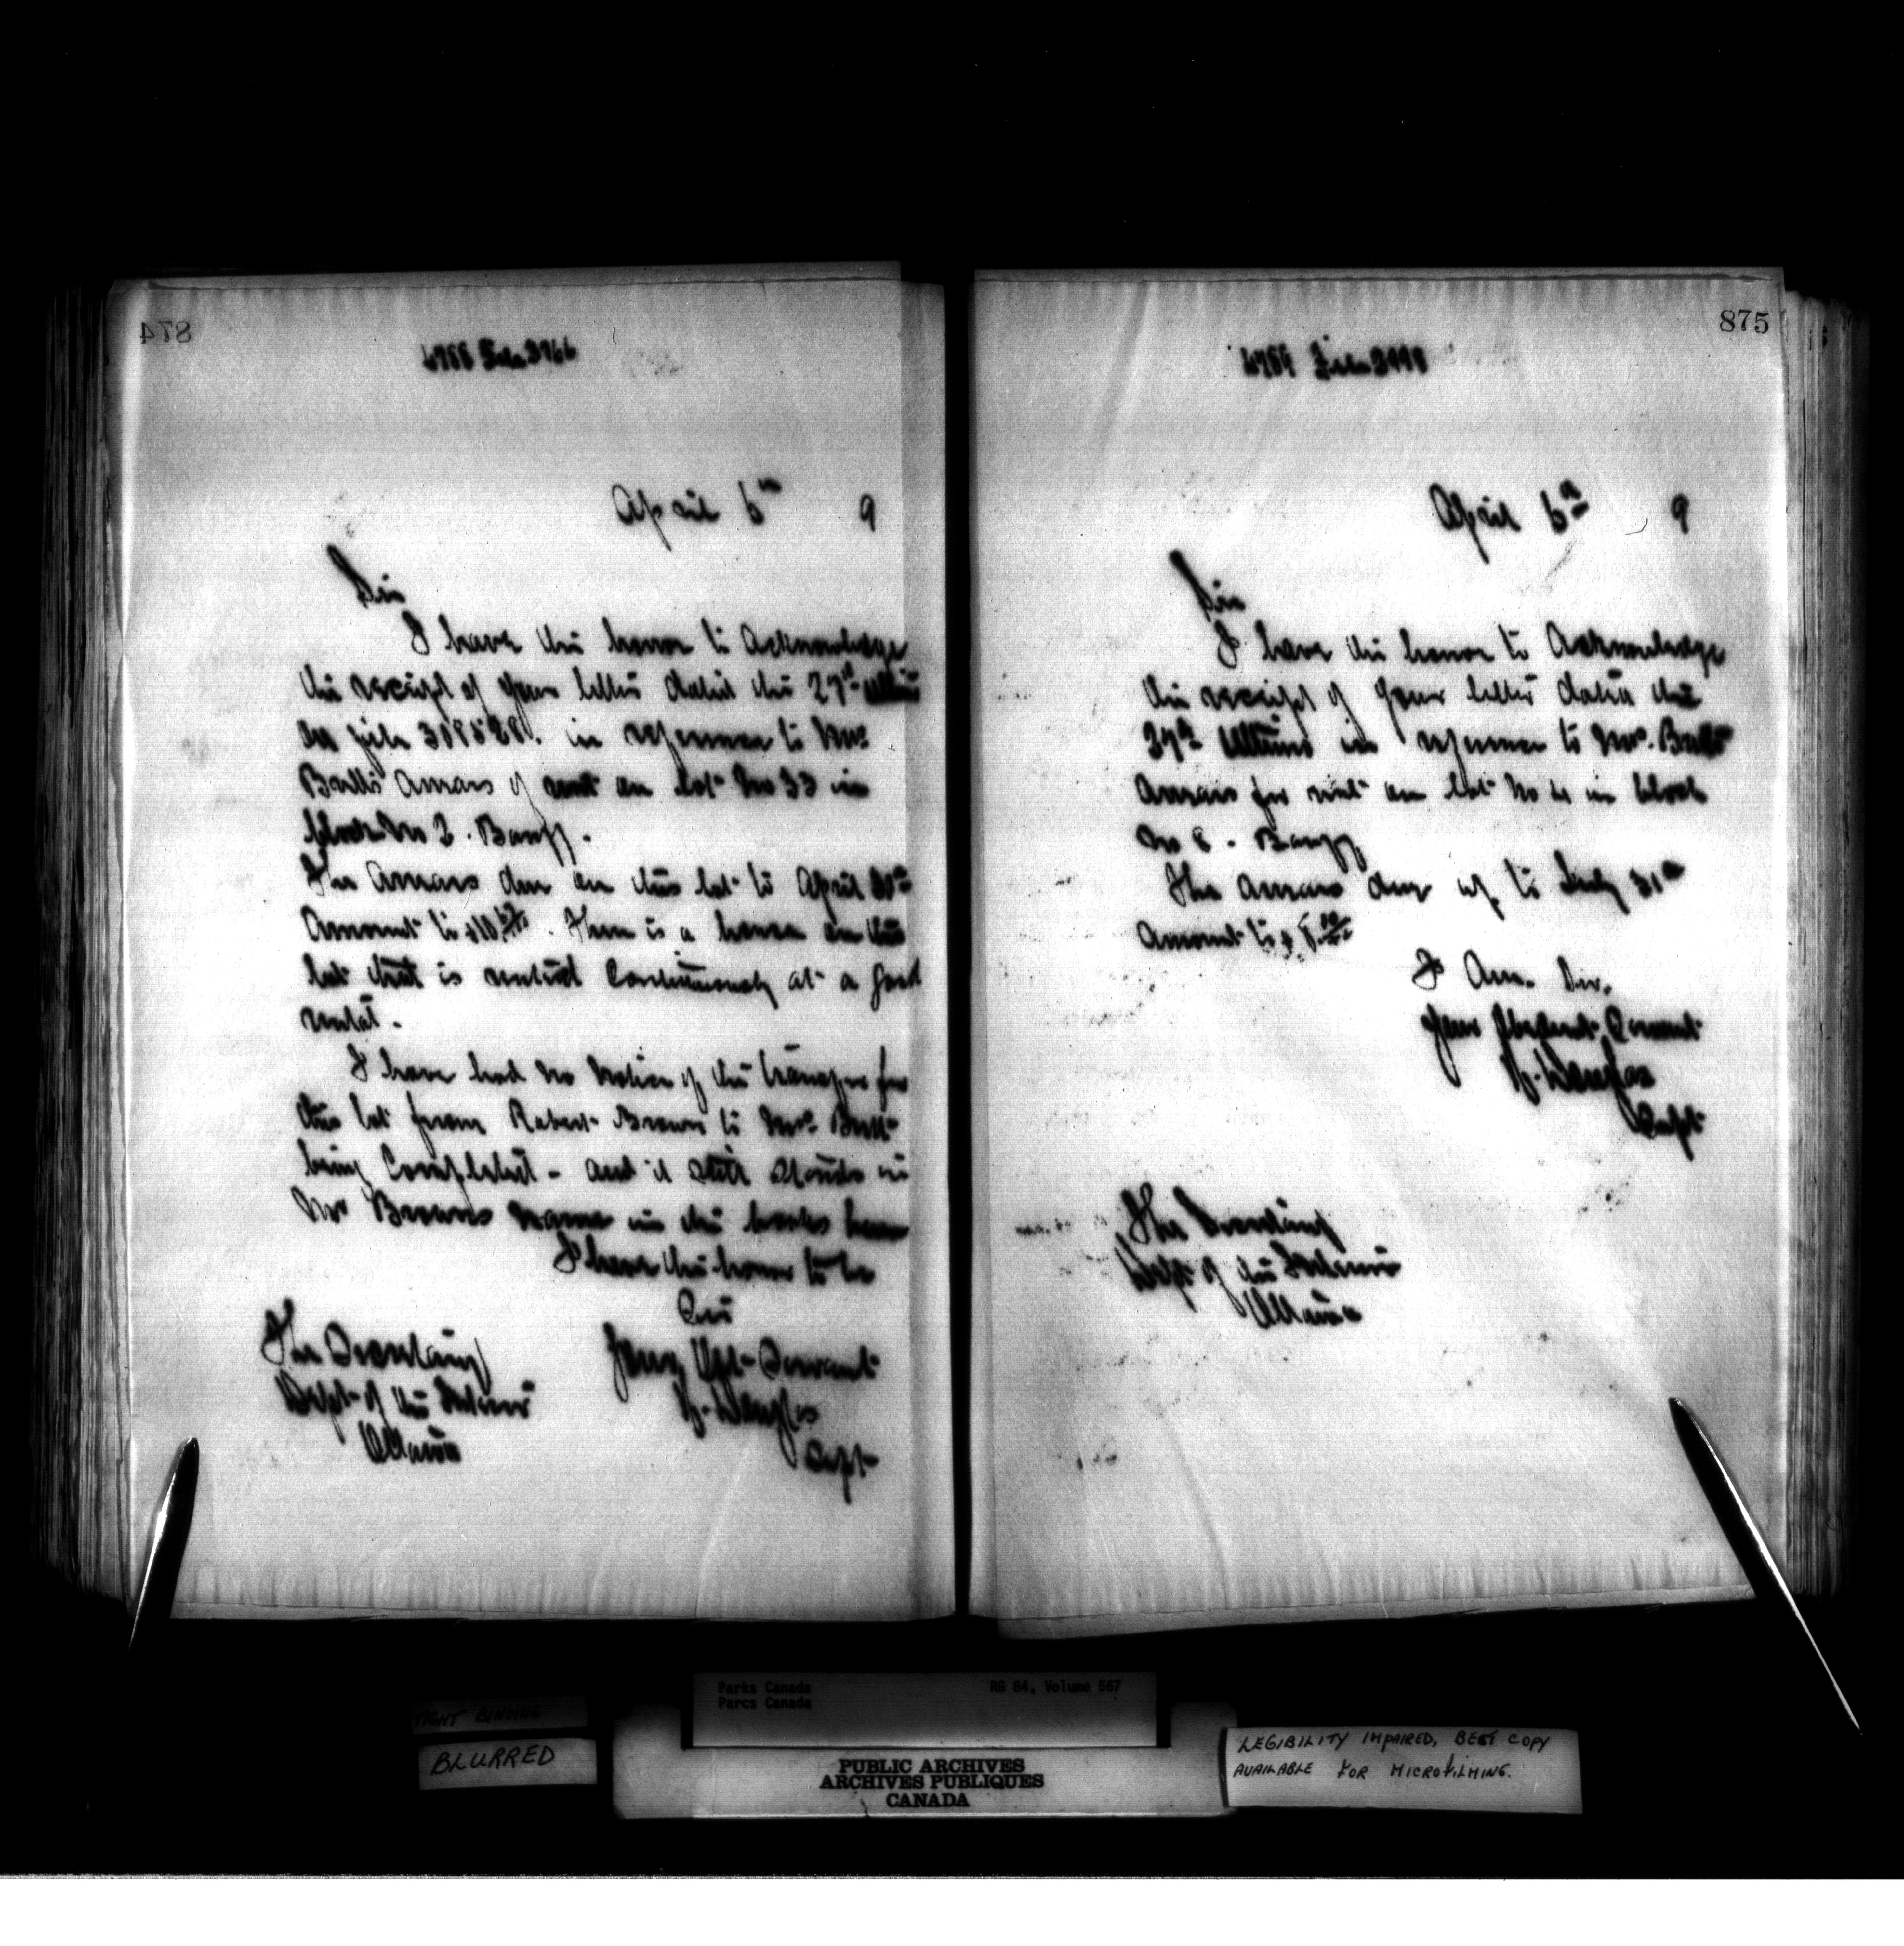 874
April 6th 9
Sir
I have the honor to Acknowledge
the receipt of your letter dated the 27th Ultimo
file in reference to Mrs
Arrears of rent on lot No 33 in
block No 2. Banff.
The Arrears due on this lot to April 30th
Amount to There is a house on this
lot that is rented Continuously at a good
rental.
I have had no Notice of the transfer for
this lot from Robert Brown to Mrs
being Completed - and it still stands in
Mr Browns name in the books here
I have the honor to be
Sir
Your Obt Servant
H. Douglas
Supt
The Secretary
Dept of the Interior
Ottawa
875
April 6th 9
Sir
I have the honor to Acknowledge
the receipt of your letter dated the
27th Ultimo in reference to Mrs.
Arrears for rent on lot No in block
No Banff
The arrears due up to July 31st
Amount to $
I Am. Sir.
Your Obedient Servant
H. Douglas
Supt
The Secretary
Dept of the Interior
Ottawa
TIGHT BINDING
BLURRED
Parks Canada
Parcs Canada
RG 84, Volume 567
PUBLIC ARCHIVES
ARCHIVES PUBLIQUES
CANADA
LEGIBILITY IMPAIRED, BEST COPY
AVAILABLE FOR MICROFILMING.